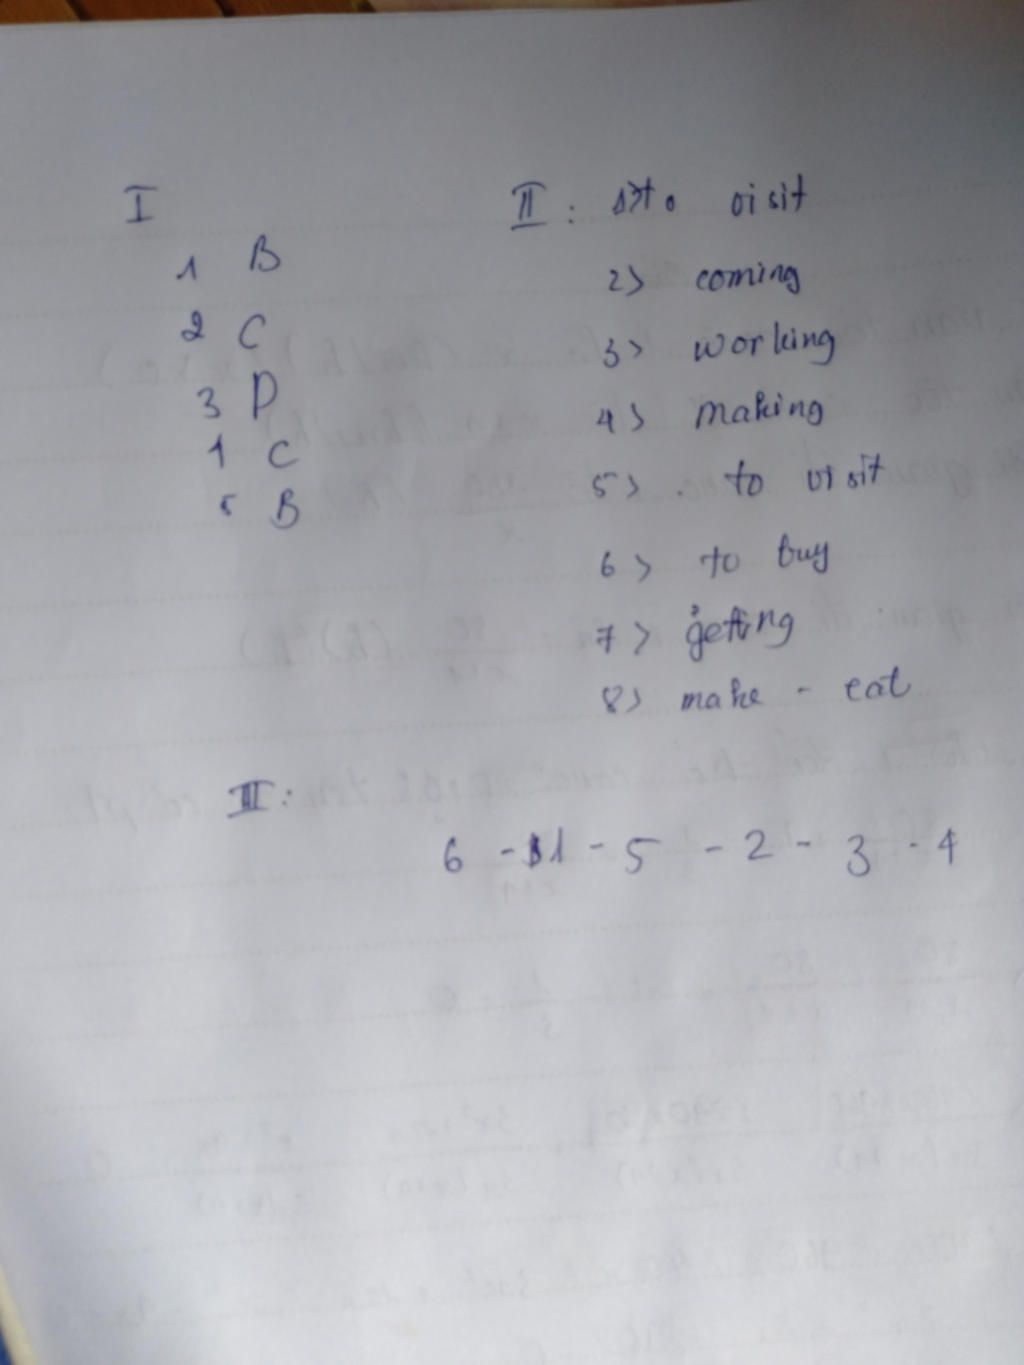 I
1 B
2 C
3 D
4 C
5 B
II : 1> to visit
2> coming
3> working
4> making
5> to visit
6> to buy
7> getting
8> make - eat
III :
6 - 1 - 5 - 2 - 3 - 4